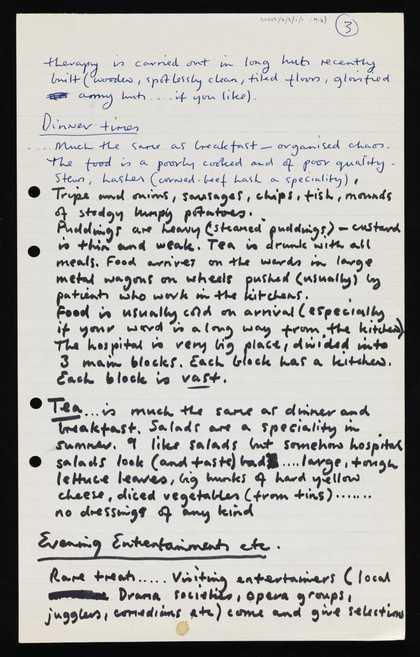 3
therapy is carried out in long huts recently
built (wooden, spotlessly clean, tiled floors, glorified
army huts.... if you like).
Dinner times
.... Much the same as breakfast — organised chaos.
The food is a poorly cooked and of poor quality.
Stews, hashes (corned-beef hash a speciality),
Tripe and onins, sausages, chips, fish, mounds
of stodgy lumpy potatoes.
Puddings are heavy (steamed puddings) — custard
is thin and weak. Tea is drunk with all
meals. Food arrives on the wards in large
metal wagons on wheels pushed (usually) by
patients who work in the kitchens.
Food is usually cold on arrival (especially
if your word is a long way from the kitchen)
The hospital is very big place, divided into
3 main blocks. Each block has a kitchen.
Each block is vast.
Tea... is much the same as dinner and
breakfast. Salads are a speciality in
summer. I like salads but somehow hospital
salads look (and taste) bad .... large, tough
lettuce leaves, big hunks of hard yellow
cheese, diced vegetables (from tins).......
no dressings of any kind
Evening Entertainments etc.
Rare treats..... Visiting entertainers (local
Drama societies, opera groups,
jugglers, comedians etc) come and give selections